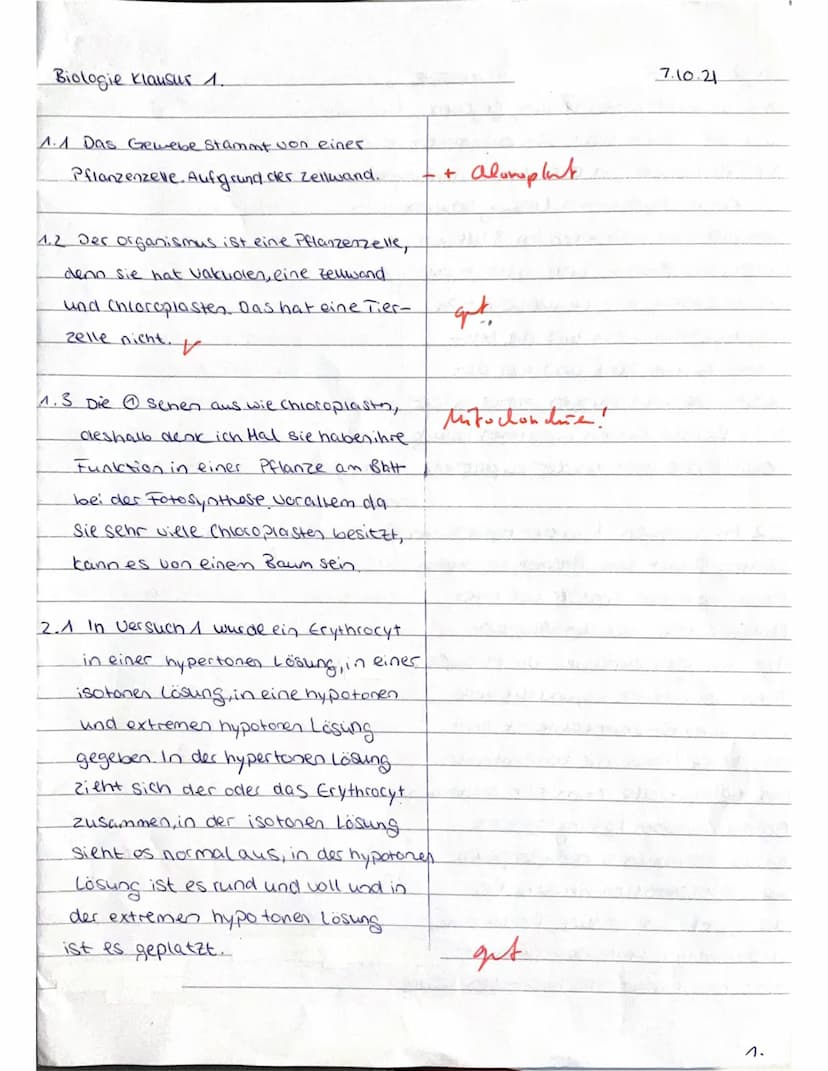 Biologie Klausur 1. 7.10.21
1.1 Das Gewebe stammt von einer
Pflanzenzelle. Aufgrund der Zellwand. - +
1.2 Der Organismus ist eine Pflanzenzelle,
denn sie hat Vakuolen, eine Zellwand
und Chloroplasten. Das hat eine Tier- gut
zelle nicht. √
1.3 Die ① sehen aus wie Chloroplasten, Mitochondrie!
deshalb denk ich Mal sie haben ihre
Funktion in einer Pflanze am Blatt
bei der Fotosynthese. Vorallem da
sie sehr viele Chloroplasten besitzt,
kann es von einem Baum sein.
2.1 In Versuch 1 wurde ein Erythrocyt
in einer hypertonen Lösung, in einer
isotonen Lösung, in eine hypotonen
und extremen hypotonen Lösung
gegeben. In der hypertonen Lösung
zieht sich der oder das Erythrocyt
zusammen, in der isotonen Lösung
sieht es normal aus, in der hypotonen
Lösung ist es rund und voll und in
der extremen hypotonen Lösung
ist es geplatzt. gut
1.